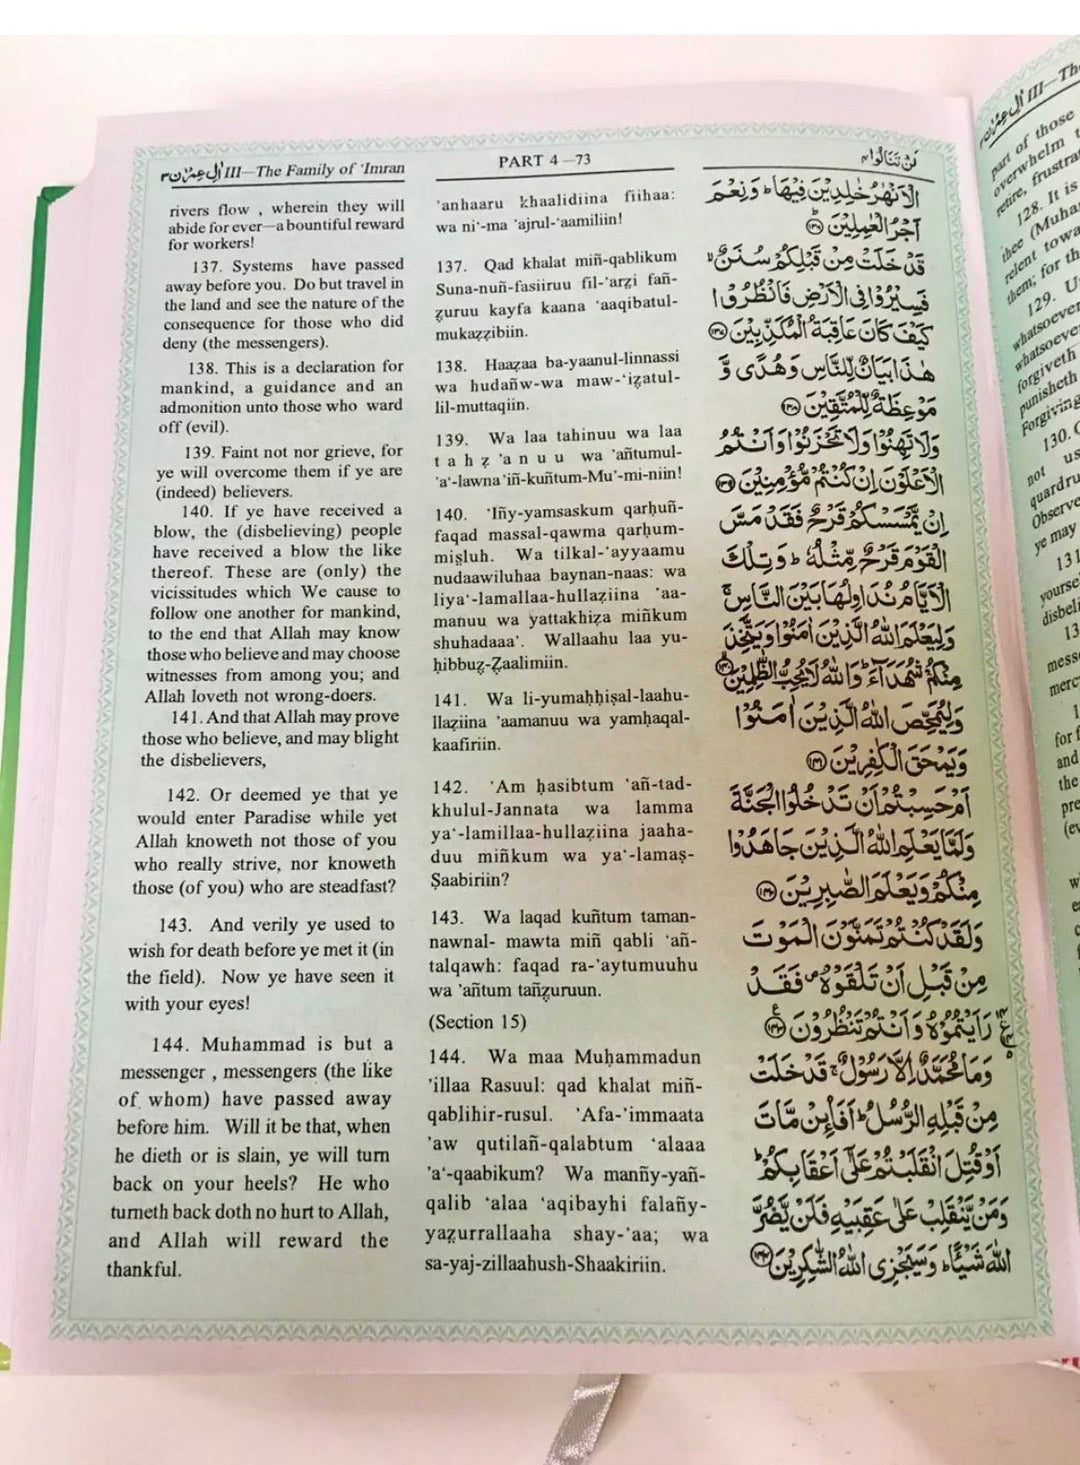 اٰلِ عِمْرٰن ٣ III—The Family of ‘Imran
PART 4 —73
لَنْ تَنَالُوا ٤
rivers flow , wherein they will
abide for ever—a bountiful reward
for workers!
137. Systems have passed
away before you. Do but travel in
the land and see the nature of the
consequence for those who did
deny (the messengers).
138. This is a declaration for
mankind, a guidance and an
admonition unto those who ward
off (evil).
139. Faint not nor grieve, for
ye will overcome them if ye are
(indeed) believers.
140. If ye have received a
blow, the (disbelieving) people
have received a blow the like
thereof. These are (only) the
vicissitudes which We cause to
follow one another for mankind,
to the end that Allah may know
those who believe and may choose
witnesses from among you; and
Allah loveth not wrong-doers.
141. And that Allah may prove
those who believe, and may blight
the disbelievers,
142. Or deemed ye that ye
would enter Paradise while yet
Allah knoweth not those of you
who really strive, nor knoweth
those (of you) who are steadfast?
143. And verily ye used to
wish for death before ye met it (in
the field). Now ye have seen it
with your eyes!
144. Muhammad is but a
messenger , messengers (the like
of whom) have passed away
before him. Will it be that, when
he dieth or is slain, ye will turn
back on your heels? He who
turneth back doth no hurt to Allah,
and Allah will reward the
thankful.
’anhaaru khaalidiina fiihaa:
wa ni‘-ma ’ajrul-‘aamiliin!
137. Qad khalat miñ-qablikum
Suna-nuñ-fasiiruu fil-’arẓi fañ-
ẓuruu kayfa kaana ‘aaqibatul-
mukaẓẓibiin.
138. Haaẓaa ba-yaanul-linnassi
wa hudañw-wa maw-‘iẓatul-
lil-muttaqiin.
139. Wa laa tahinuu wa laa
tahẓ’anuu wa ’añtumul-
’a‘-lawna ’iñ-kuñtum-Mu’-mi-niin!
140. ’Iñy-yamsaskum qarḥuñ-
faqad massal-qawma qarḥum-
miṣluh. Wa tilkal-’ayyaamu
nudaawiluhaa baynan-naas: wa
liya‘-lamallaa-hullaẓiina ’aa-
manuu wa yattakhiẓa miñkum
shuhadaaa’. Wallaahu laa yu-
ḥibbuẓ-Ẓaalimiin.
141. Wa li-yumaḥḥiṣal-laahu-
llaẓiina ’aamanuu wa yamḥaqal-
kaafiriin.
142. ’Am ḥasibtum ’añ-tad-
khulul-Jannata wa lamma
ya‘-lamillaa-hullaẓiina jaaha-
duu miñkum wa ya‘-lamaṣ-
Ṣaabiriin?
143. Wa laqad kuñtum taman-
nawnal- mawta miñ qabli ’añ-
talqawh: faqad ra-’aytumuuhu
wa ’añtum tañẓuruun.
(Section 15)
144. Wa maa Muḥammadun
’illaa Rasuul: qad khalat miñ-
qablihir-rusul. ’Afa-’immaata
’aw qutilañ-qalabtum ‘alaaa
’a‘-qaabikum? Wa mañny-yañ-
qalib ‘alaa ‘aqibayhi falañy-
yaẓurrallaaha shay-’aa; wa
sa-yaj-zillaahush-Shaakiriin.
الْاَنْهٰرُ خٰلِدِيْنَ فِيْهَا ؕ وَنِعْمَ
اَجْرُ الْعٰمِلِيْنَ ؕ ﴿۱۳۶﴾
قَدْ خَلَتْ مِنْ قَبْلِكُمْ سُنَنٌ ۙ
فَسِيْرُوْا فِي الْاَرْضِ فَانْظُرُوْا
كَيْفَ كَانَ عَاقِبَةُ الْمُكَذِّبِيْنَ ﴿۱۳۷﴾
هٰذَا بَيَانٌ لِّلنَّاسِ وَهُدًى وَّ
مَوْعِظَةٌ لِّلْمُتَّقِيْنَ ﴿۱۳۸﴾
وَلَا تَهِنُوْا وَلَا تَحْزَنُوْا وَاَنْتُمُ
الْاَعْلَوْنَ اِنْ كُنْتُمْ مُّؤْمِنِيْنَ ﴿۱۳۹﴾
اِنْ يَّمْسَسْكُمْ قَرْحٌ فَقَدْ مَسَّ
الْقَوْمَ قَرْحٌ مِّثْلُهٗ ؕ وَتِلْكَ
الْاَيَّامُ نُدَاوِلُهَا بَيْنَ النَّاسِ ۚ
وَلِيَعْلَمَ اللّٰهُ الَّذِيْنَ اٰمَنُوْا وَيَتَّخِذَ
مِنْكُمْ شُهَدَآءَ ؕ وَاللّٰهُ لَا يُحِبُّ الظّٰلِمِيْنَ ۙ ﴿۱۴۰﴾
وَلِيُمَحِّصَ اللّٰهُ الَّذِيْنَ اٰمَنُوْا
وَيَمْحَقَ الْكٰفِرِيْنَ ﴿۱۴۱﴾
اَمْ حَسِبْتُمْ اَنْ تَدْخُلُوا الْجَنَّةَ
وَلَمَّا يَعْلَمِ اللّٰهُ الَّذِيْنَ جَاهَدُوْا
مِنْكُمْ وَيَعْلَمَ الصّٰبِرِيْنَ ﴿۱۴۲﴾
وَلَقَدْ كُنْتُمْ تَمَنَّوْنَ الْمَوْتَ
مِنْ قَبْلِ اَنْ تَلْقَوْهُ ۪ فَقَدْ
رَاَيْتُمُوْهُ وَاَنْتُمْ تَنْظُرُوْنَ ﴿۱۴۳﴾
وَمَا مُحَمَّدٌ اِلَّا رَسُوْلٌ ۚ قَدْ خَلَتْ
مِنْ قَبْلِهِ الرُّسُلُ ؕ اَفَا۟ئِنْ مَّاتَ
اَوْ قُتِلَ انْقَلَبْتُمْ عَلٰٓى اَعْقَابِكُمْ ؕ
وَمَنْ يَّنْقَلِبْ عَلٰى عَقِبَيْهِ فَلَنْ يَّضُرَّ
اللّٰهَ شَيْـًٔا ؕ وَسَيَجْزِى اللّٰهُ الشّٰكِرِيْنَ ﴿۱۴۴﴾
اٰلِ عِمْرٰن ٣ III—The
part of those
overwhelm
retire, frustrat
128. It is
thee (Muha
relent towa
them; for th
129. U
whatsoever
whatsoeve
forgiveth
punisheth
Forgiving
130.
not us
quardru
Observe
ye may
131
yourse
disbeli
13
messe
merc
for f
and
the
pre
(ev